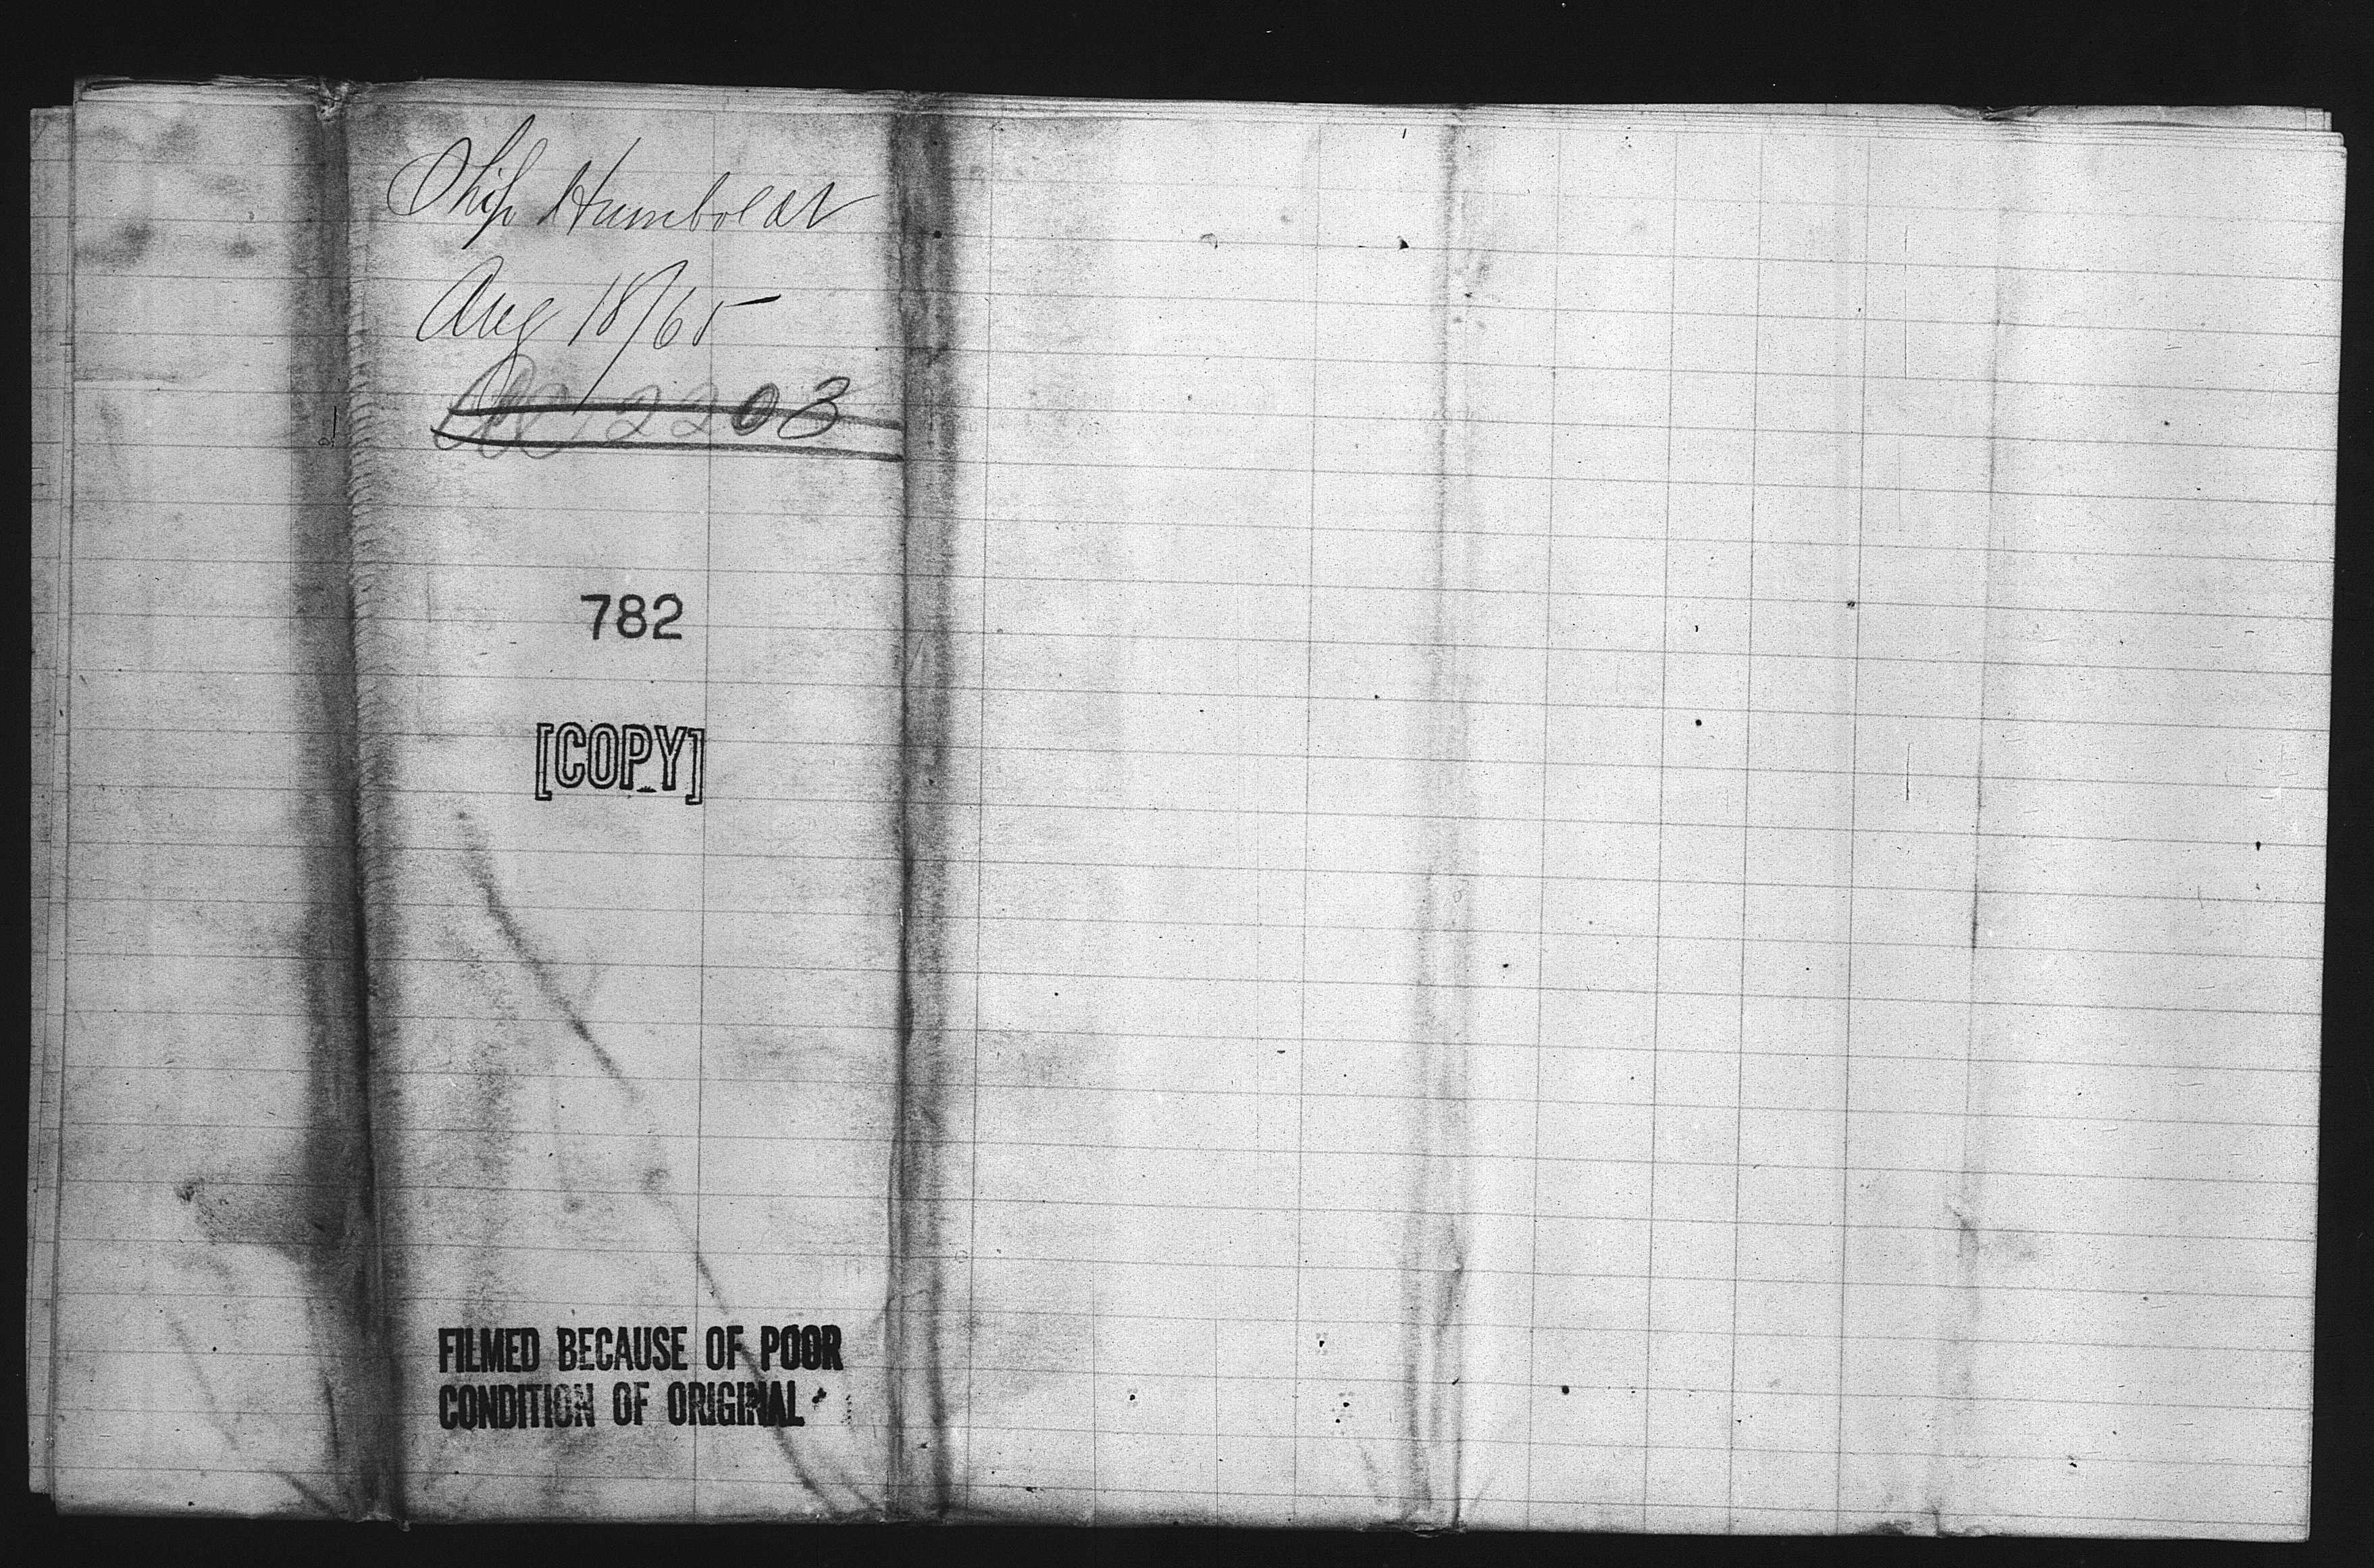 Ship Humboldt
Aug 18/65
2203
782
[COPY]
FILMED BECAUSE OF POOR
CONDITION OF ORIGINAL